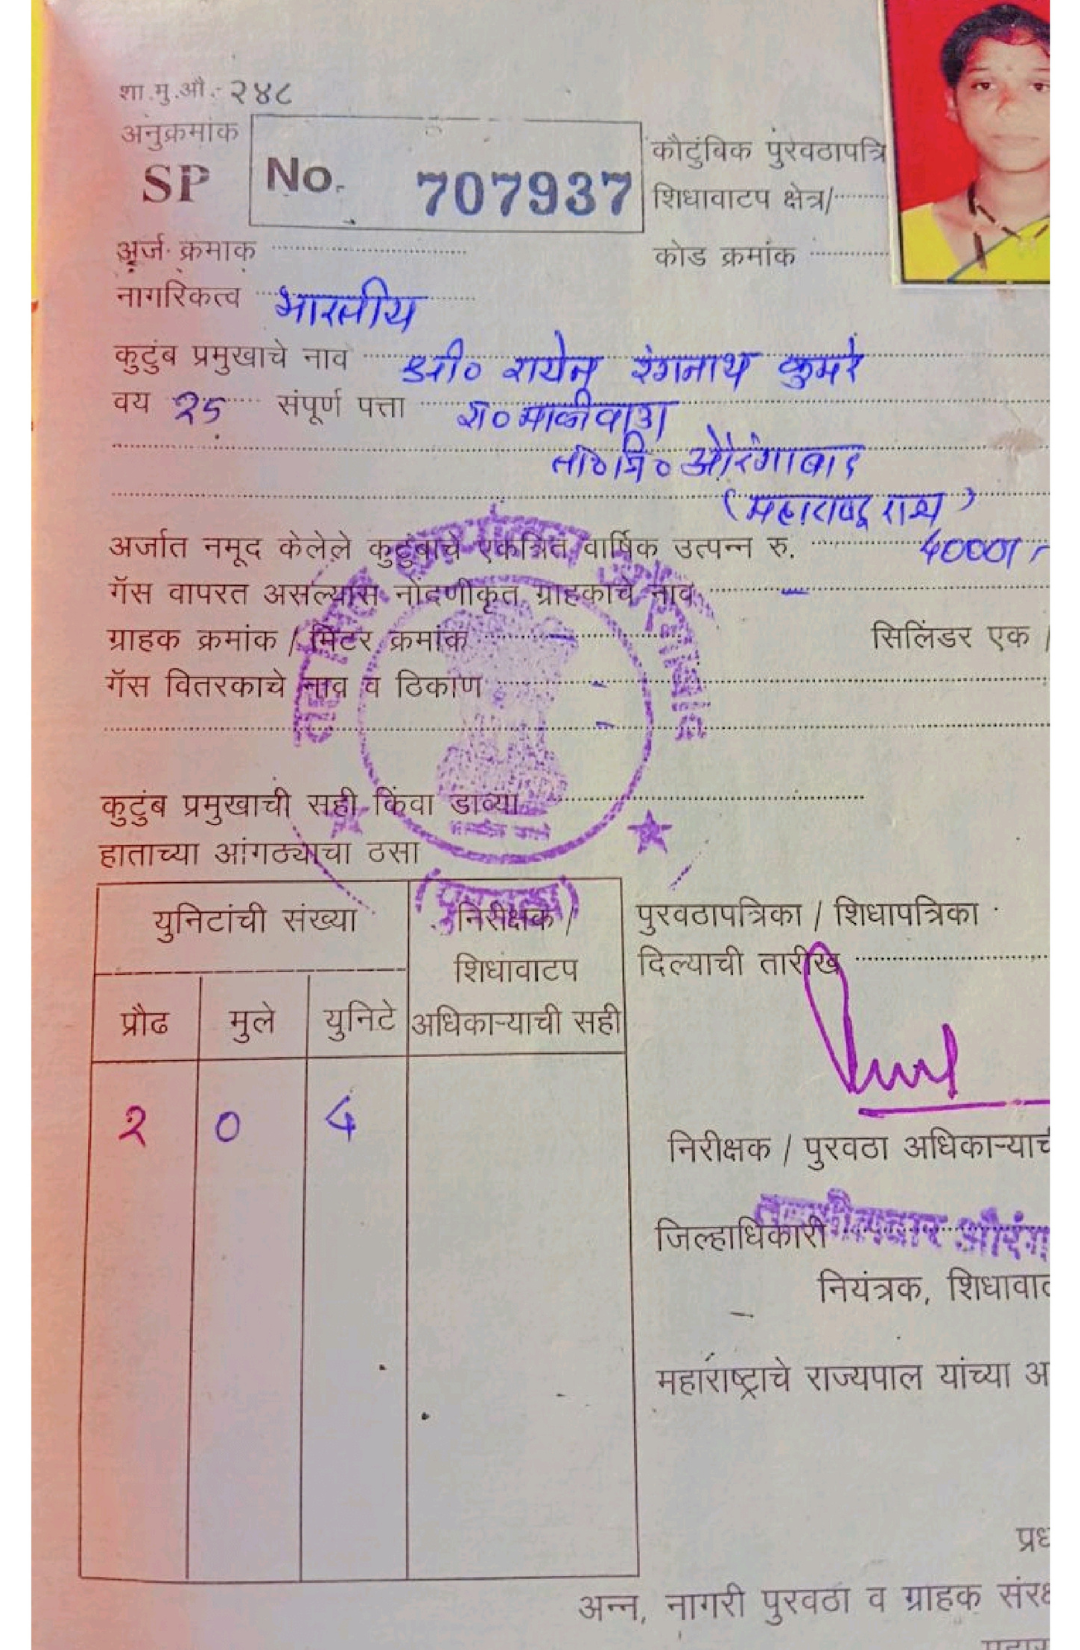 शा.मु.औ.- २४८
अनुक्रमांक
SP No. 707937
कौटुंबिक पुरवठापत्रि
शिधावाटप क्षेत्र/
अर्ज क्रमाक
कोड क्रमांक
नागरिकत्व भारतीय
कुटुंब प्रमुखाचे नाव श्री० रायेन रंगनाथ कुमरे
वय 25 संपूर्ण पत्ता रा० माळीवाडा
ता०जि० औरंगाबाद
(महाराष्ट्र राज्य)
अर्जात नमूद केलेले कुटुंबाचे एकत्रित वार्षिक उत्पन्न रु.
गॅस वापरत असल्यास नोंदणीकृत ग्राहकाचे नाव -
ग्राहक क्रमांक / मिटर क्रमांक - सिलिंडर एक /
गॅस वितरकाचे नाव व ठिकाण -
-
कुटुंब प्रमुखाची सही किंवा डाव्या
हाताच्या आंगठ्याचा ठसा
(पुरवठा)
युनिटांची संख्या
निरीक्षक /
शिधावाटप
अधिकाऱ्याची सही
प्रौढ मुले युनिटे
२ 0
पुरवठापत्रिका / शिधापत्रिका
दिल्याची तारीख
निरीक्षक / पुरवठा अधिकाऱ्याच
जिल्हाधिकारी
तहसीलदार औरंगा
नियंत्रक, शिधावाट
महाराष्ट्राचे राज्यपाल यांच्या अ
प्रध
अन्न, नागरी पुरवठा व ग्राहक संरक्ष